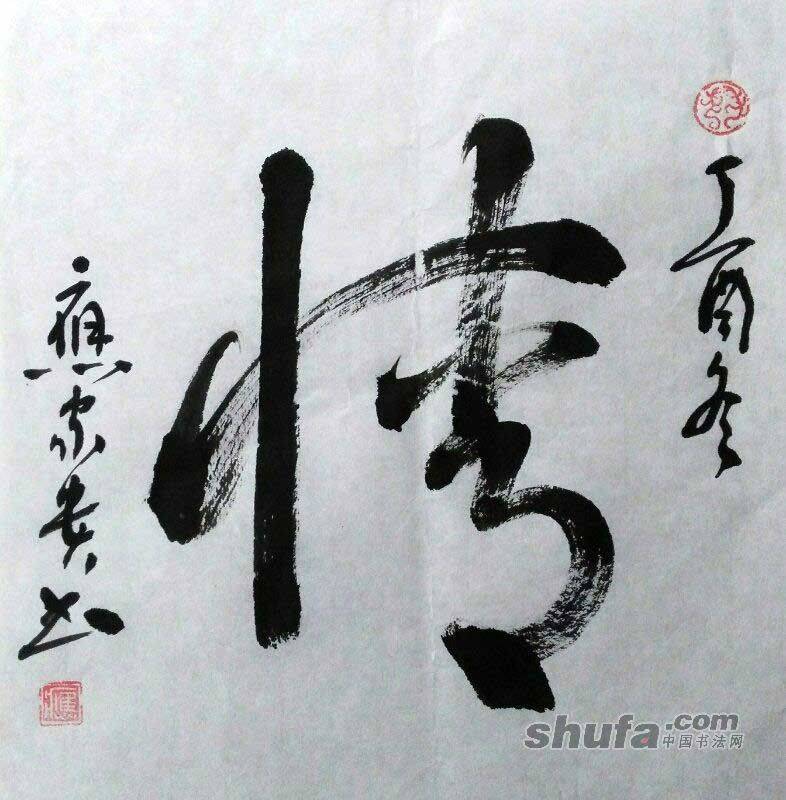 丁酉冬
情
應家贵书
shufa.com
中国书法网